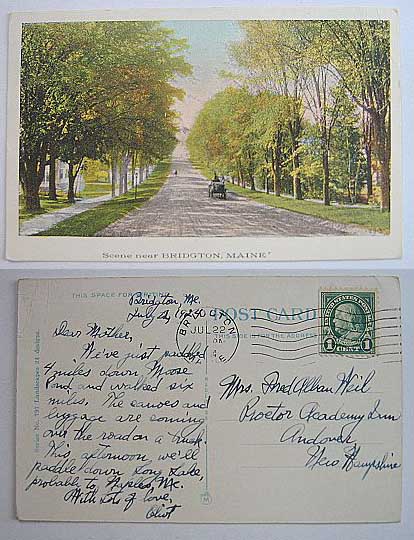 Scene near BRIDGTON, MAINE
THIS SPACE FOR
Bridgton, Me.
July 22,
POST CARD
THIS SIDE IS FOR THE ADDRESS
BRIDGTON
JUL 22
ME
1 CENT 1
Dear Mother,
We've just paddled
4 miles down Moose
Pond and walked six
miles. The canoes and
luggage are coming
over the road on a truck.
This afternoon, we'll
paddle down Long Lake,
probably to Naples, Me.
With lots of love,
Mrs. Fred Allan Weil
Proctor Academy Inn
Andover,
New Hampshire
Series No. 751 Landscapes 21 designs.
M